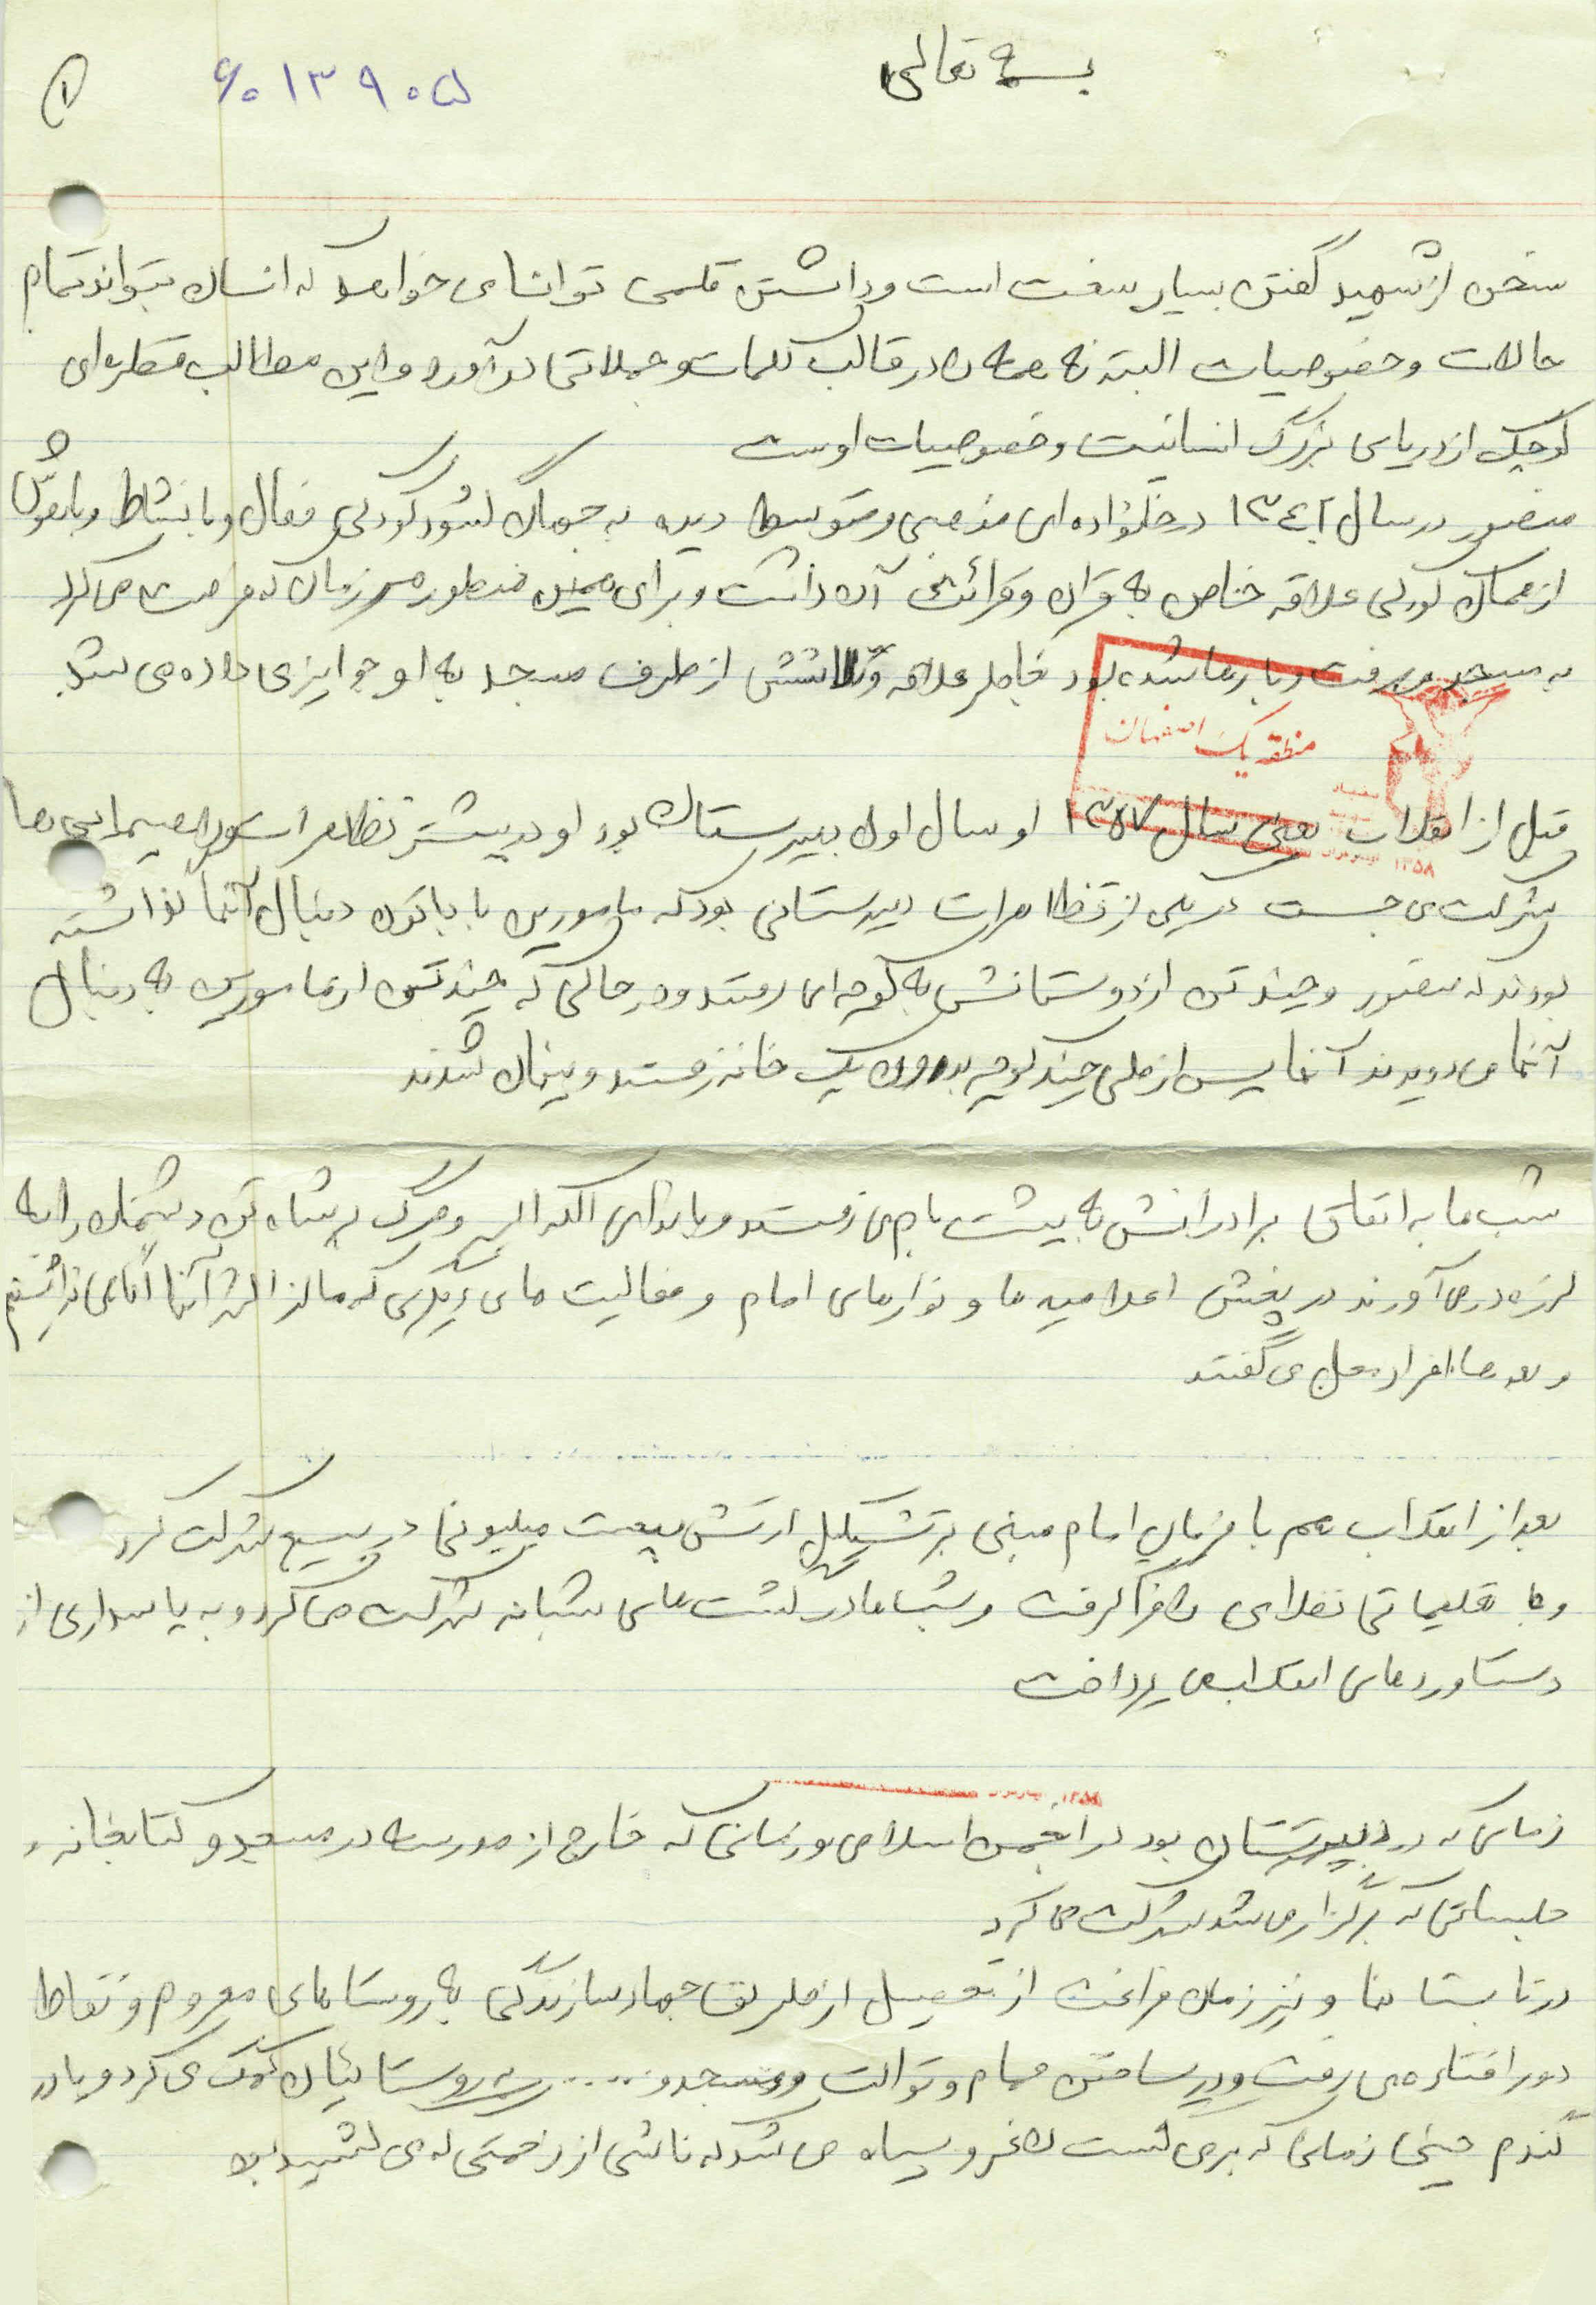 بسمه تعالی
۶۰۱۳۹۰۵
۱
سخن از شهید گفتن بسیار سخت است و داشتن قلمی توانا می خواهد که انسان بتواند تمام
حالات و خصوصیات البته نه همه را در قالب کلمات و جملاتی در آورد و این مطالب قطره ای
کوچک از دریای بزرگ انسانیت و خصوصیات اوست
منصور در سال ۱۳۴۲ در خانواده ای مذهبی و متوسط دیده به جهان گشود کودکی فعال و با نشاط و باهوش
از همان کودکی علاقه خاص به قران و قرائت آن داشت و برای همین منظور هر زمان که فرصت می کرد
به مسجد می رفت و بارها شده بود بخاطر علاقه و تلاشش از طرف مسجد به او جوایزی داده می شد
منطقه یک اصفهان
۱۳۵۸
قبل از انقلاب یعنی سال ۱۳۵۷ او سال اول دبیرستان بود او در بیشتر تظاهرات و راهپیمایی ها
شرکت می جست در یکی از تظاهرات دبیرستانی بود که مامورین با باتون دنبال آنها گذاشته
بودند که منصور و چند تن از دوستانش به کوچه ای رفتند و در حالی که چند تن از مامورین به دنبال
آنها می دویدند آنها پس از طی چند کوچه بدرون یک خانه رفتند و پنهان شدند
شب ها به اتفاق برادرانش به پشت بام می رفتند و با ندای الله اکبر و مرگ بر شاه تن دشمنان را به
لرزه در می آورند در پخش اعلامیه ها و نوارهای امام و فعالیت های دیگری که ما از اکثر آنها آگاهی نداشتیم
و بعدها افراد محل می گفتند
بعد از انقلاب هم با فرمان امام مبنی بر تشکیل ارتش بیست میلیونی در بسیج شرکت کرد
و با تعلیماتی نظامی را فرا گرفت و شبها در گشت های شبانه شرکت می کرد و به پاسداری از
دستاوردهای انقلاب می پرداخت
۱۳۵۸
زمانی که در دبیرستان بود در انجمن اسلامی و زمانی که خارج از مدرسه در مسجد و کتابخانه و
جلساتی که برگزار می شد شرکت می کرد
در تابستانها و نیز زمان فراغت از تحصیل از طریق جهاد سازندگی به روستاهای محروم و نقاط
دور افتاده می رفت و در ساختن حمام و توالت و مسجد و ..... به روستائیان کمک می کرد و یا در
گندم چینی زمانی که بر می گشت لاغر و سیاه می شد که ناشی از زحمتی که می کشید بود